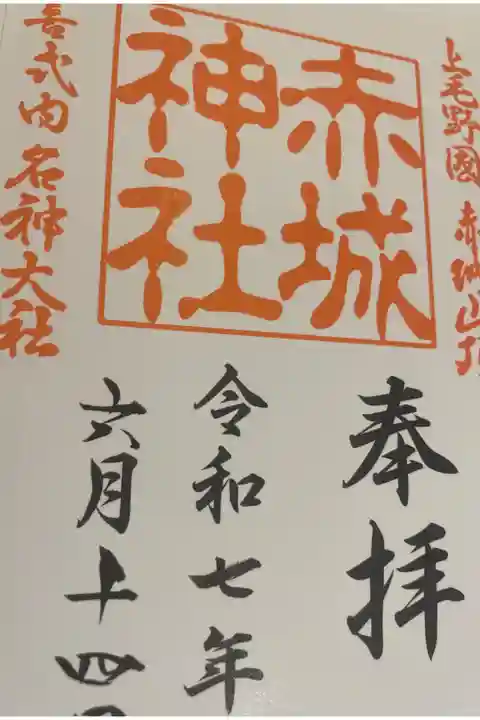 上毛野國 赤城山頂
赤城
神社
喜式内名神大社
奉拝
令和七年
六月十四日